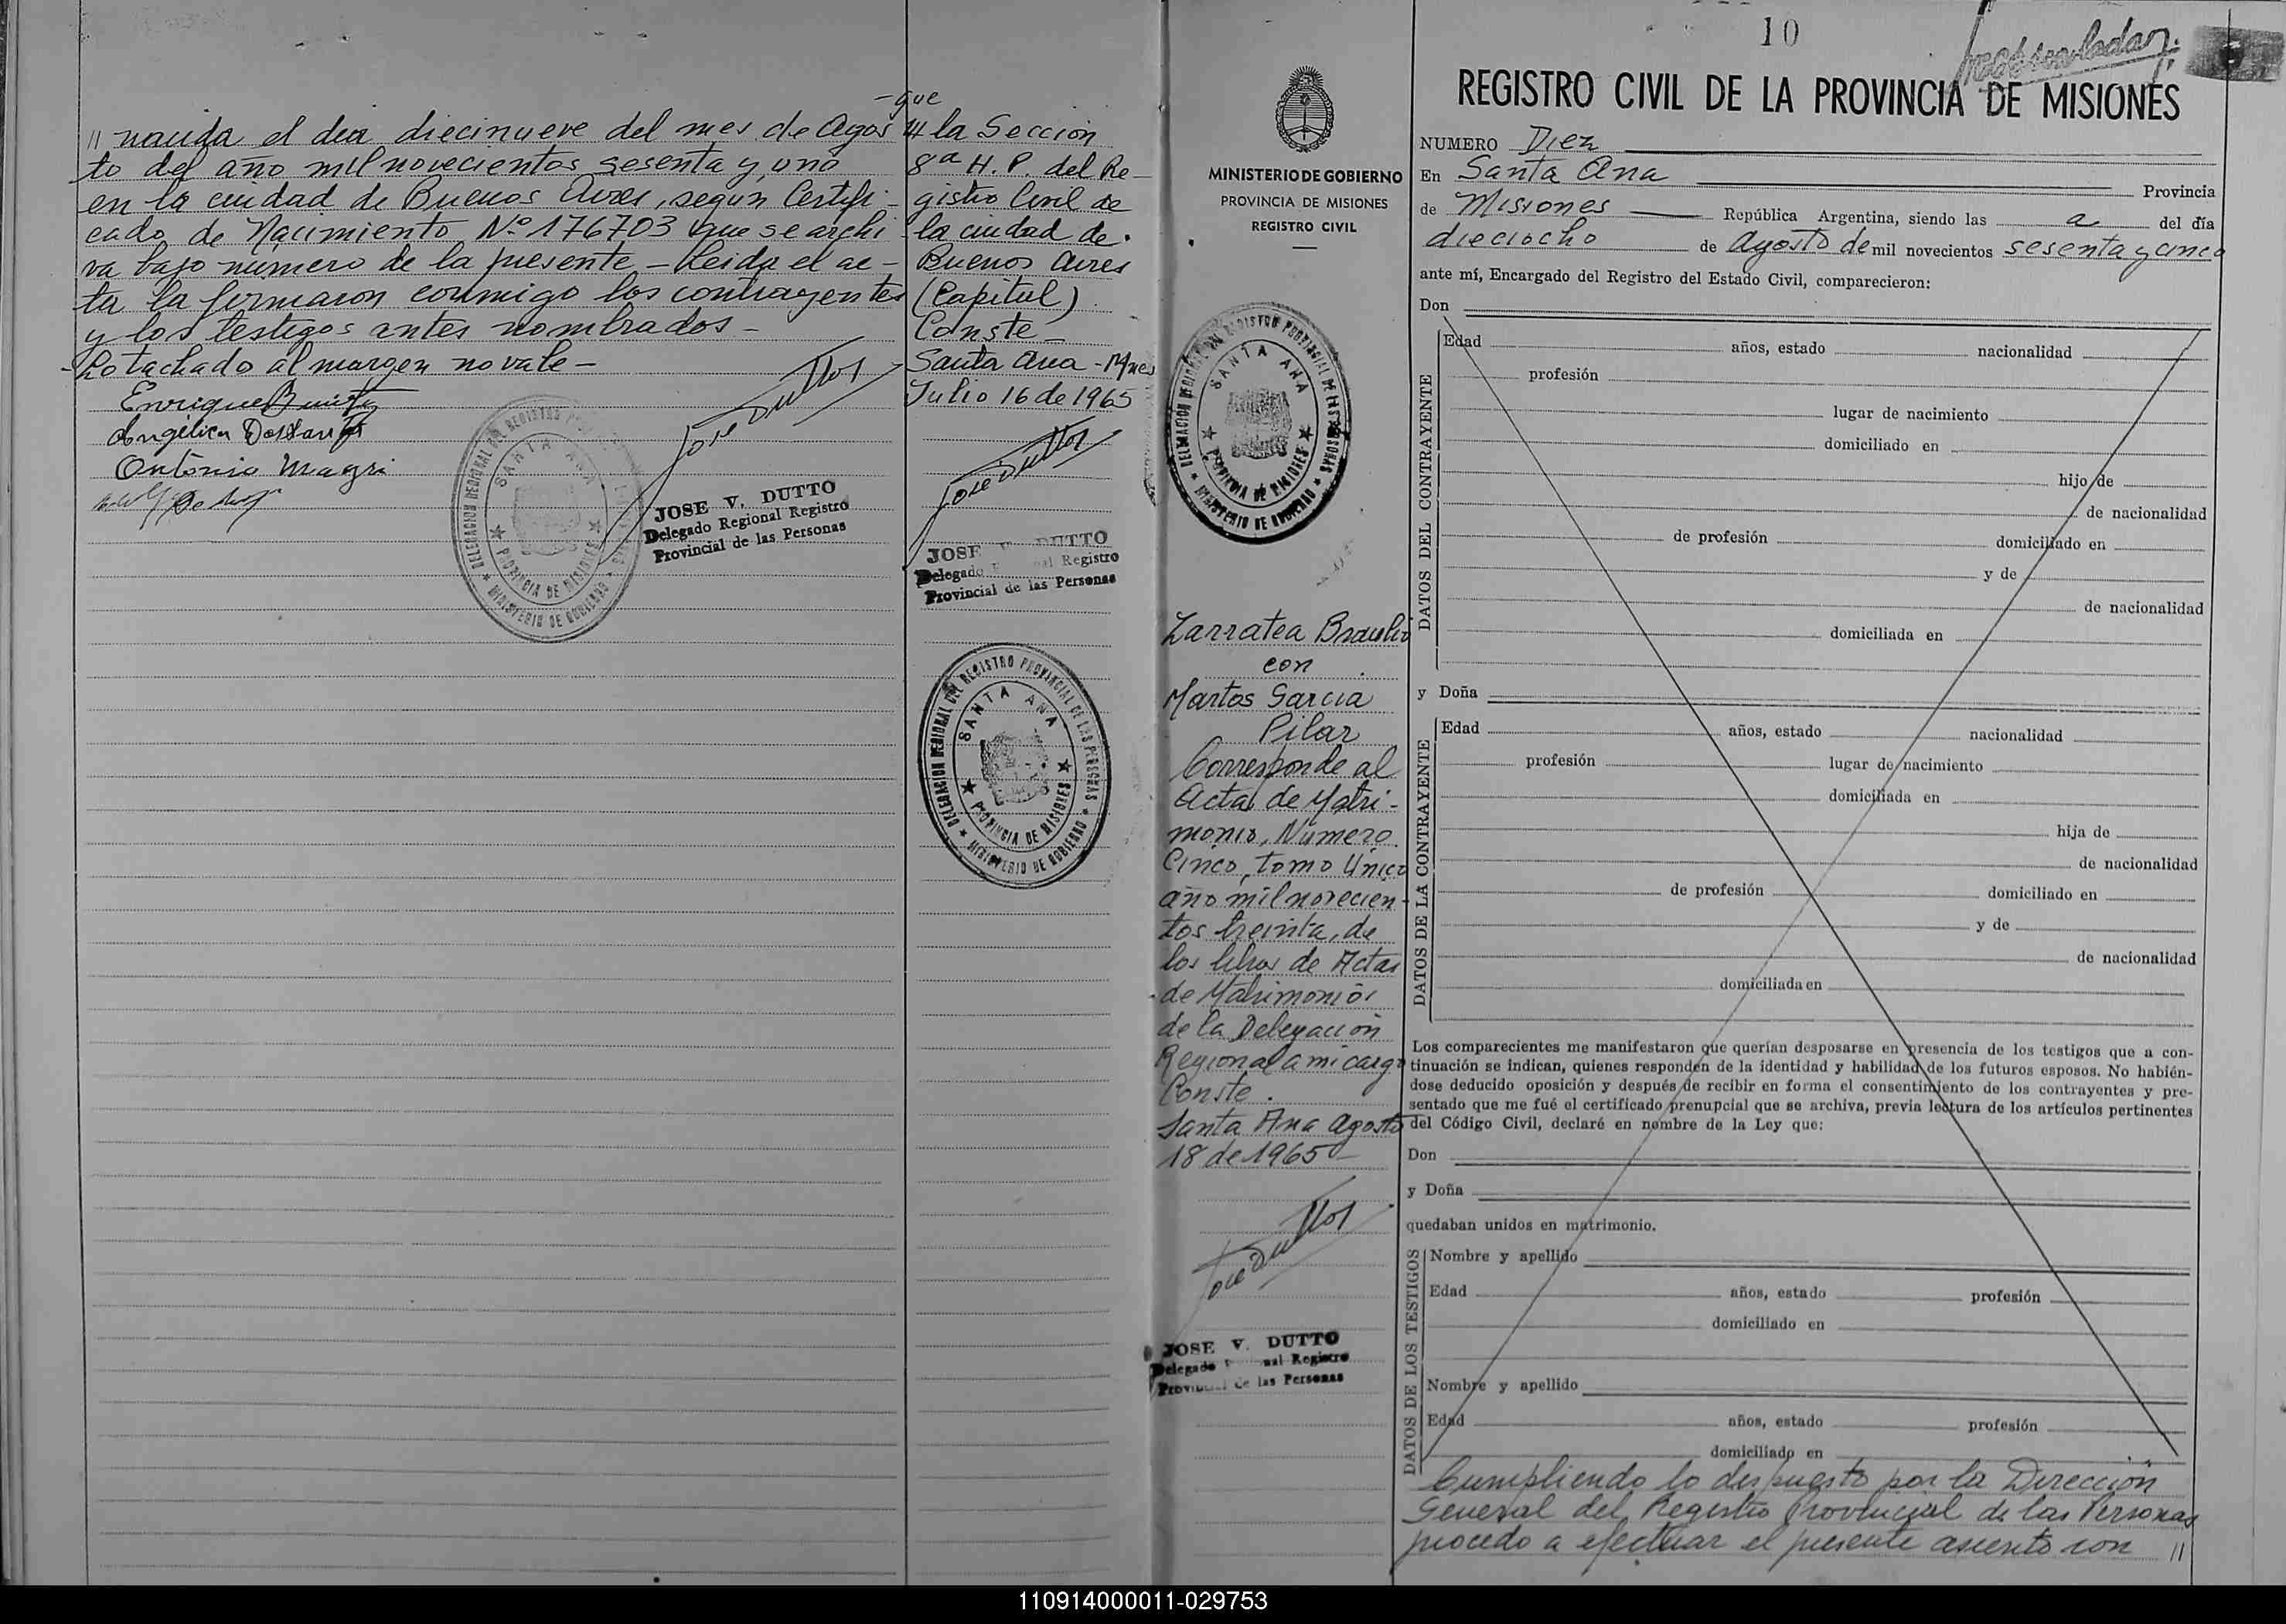 // nacida el dia diecinueve del mes de Agos
to del año mil novecientos sesenta y uno
en la ciudad de Buenos Aires, según Certifi-
cado de Nacimiento Nº 176703 que se archi
va bajo numero de la presente - Leida el ac-
ta la firmaron conmigo los contrayentes
y los testigos antes nombrados -
- Lo tachado al margen no vale -
Enrique Benitez
Angélica Dos Santos
Antonio Magri
DELEGACION REGIONAL DEL REGISTRO PROVINCIAL DE LAS PERSONAS
SANTA ANA
PROVINCIA DE MISIONES
MINISTERIO DE GOBIERNO
Jose Dutto
JOSE V. DUTTO
Delegado Regional Registro
Provincial de las Personas
- que
/// la Sección
8ª H. P. del Re-
gistro Civil de
la ciudad de
Buenos Aires
(Capital)
Conste -
Santa Ana - Mnes
Julio 16 de 1965
Jose Dutto
JOSE V. DUTTO
Delegado Registro
Provincial de las Personas
DELEGACION REGIONAL DEL REGISTRO PROVINCIAL DE LAS PERSONAS
SANTA ANA
PROVINCIA DE MISIONES
MINISTERIO DE GOBIERNO
MINISTERIO DE GOBIERNO
PROVINCIA DE MISIONES
REGISTRO CIVIL
DELEGACION REGIONAL DEL REGISTRO PROVINCIAL DE LAS PERSONAS
SANTA ANA
PROVINCIA DE MISIONES
MINISTERIO DE GOBIERNO
Zarratea Braulio
con
Martos Garcia
Pilar
Corresponde al
Acta de Matri-
monio, Número
Cinco, tomo Unico
año mil novecien-
tos treinta, de
los libros de Actas
de Matrimonios
de la Delegación
Regional a mi cargo
Conste.
Santa Ana Agosto
18 de 1965 -
Jose Dutto
JOSE V. DUTTO
Delegado Registro
Provincial de las Personas
10
REGISTRO CIVIL DE LA PROVINCIA DE MISIONES
NUMERO Diez
En Santa Ana Provincia
de Misiones República Argentina, siendo las a del día
dieciocho de Agosto de mil novecientos sesenta y cinco
ante mí, Encargado del Registro del Estado Civil, comparecieron:
Don
DATOS DEL CONTRAYENTE
Edad años, estado nacionalidad
profesión
lugar de nacimiento
domiciliado en
hijo de
de nacionalidad
de profesión domiciliado en
y de
de nacionalidad
domiciliada en
y Doña
DATOS DE LA CONTRAYENTE
Edad años, estado nacionalidad
profesión lugar de nacimiento
domiciliada en
hija de
de nacionalidad
de profesión domiciliado en
y de
de nacionalidad
domiciliada en
Los comparecientes me manifestaron que querían desposarse en presencia de los testigos que a con-
tinuación se indican, quienes responden de la identidad y habilidad de los futuros esposos. No habién-
dose deducido oposición y después de recibir en forma el consentimiento de los contrayentes y pre-
sentado que me fué el certificado prenupcial que se archiva, previa lectura de los artículos pertinentes
del Código Civil, declaré en nombre de la Ley que:
Don
y Doña
quedaban unidos en matrimonio.
DATOS DE LOS TESTIGOS
Nombre y apellido
Edad años, estado profesión
domiciliado en
Nombre y apellido
Edad años, estado profesión
domiciliado en
Cumpliendo lo dispuesto por la Dirección
General del Registro Provincial de las Personas
procedo a efectuar el presente asiento con //
110914000011-029753